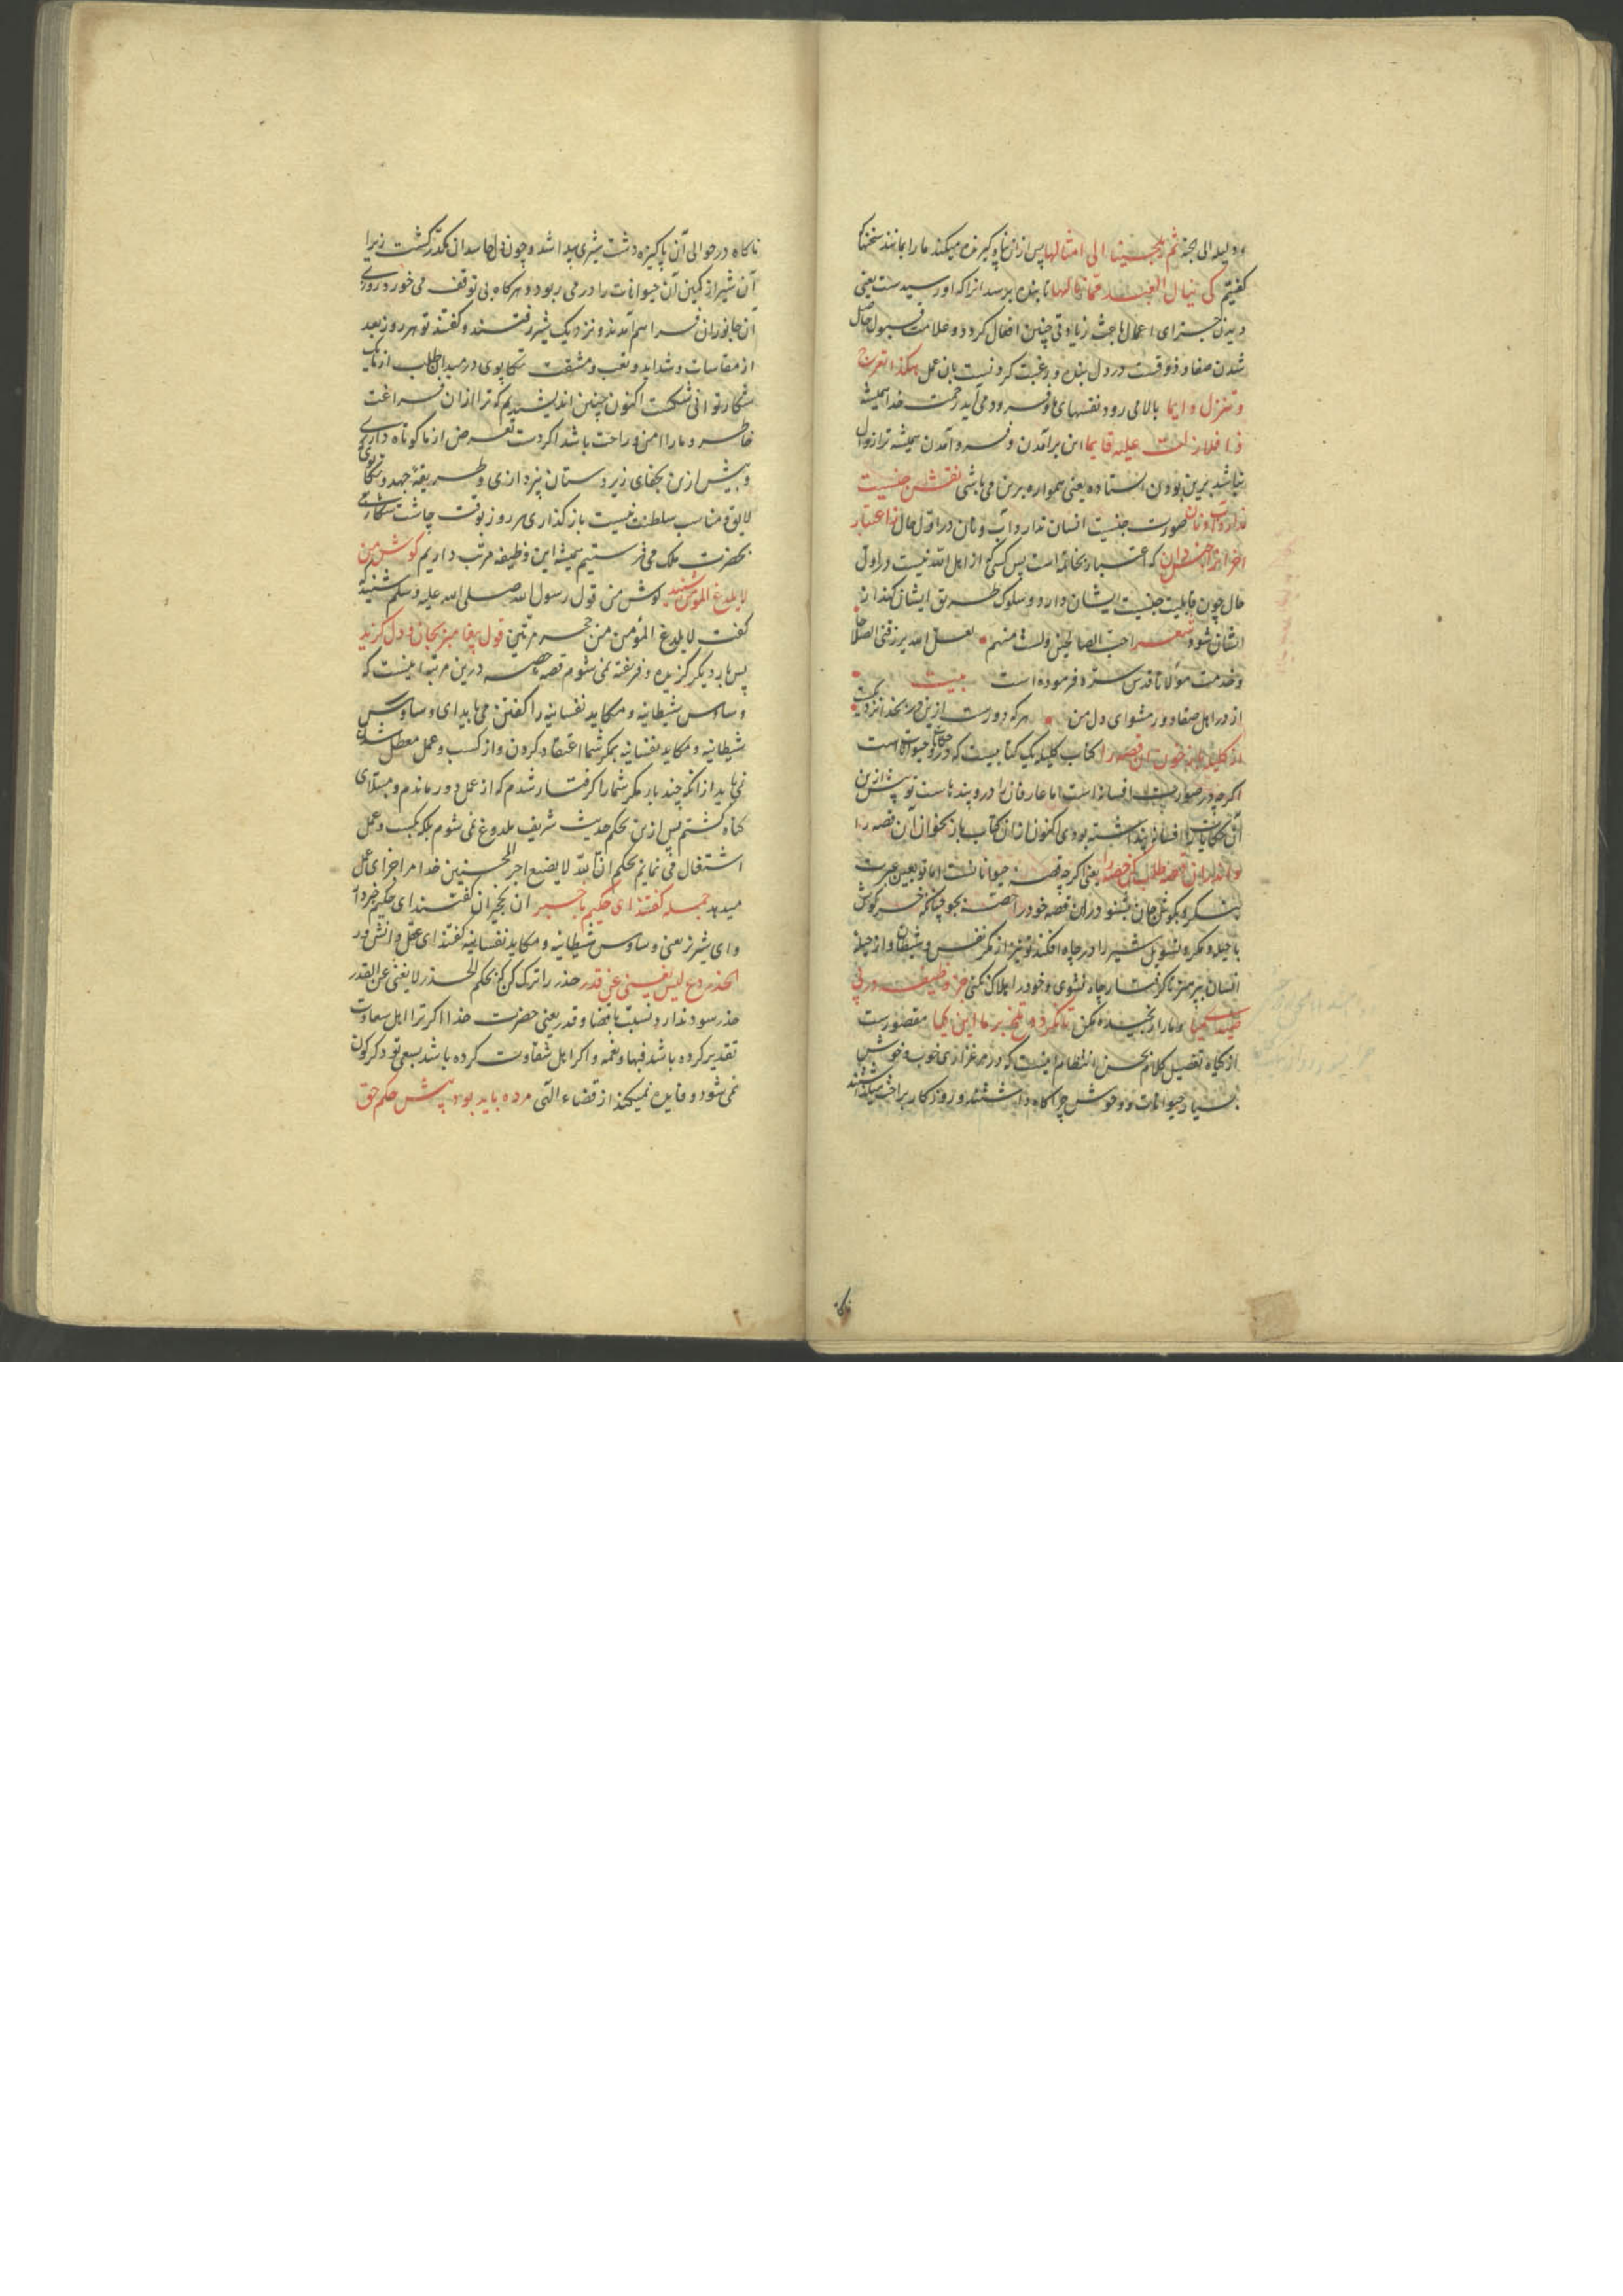 ثم یلجینا الی امثالها پس از زن ناپکیزه میکند ما را بمانند سخنها
کفتیم کی ینال العبد مما نالها تا بنده برسد انرا که او رسیدست یعنی
دیدن جزای اعمال باعث زیادتی چنین افعال کردد و علامت قبول حاصل
شدن صفا و ذوقست در دل بنده و رغبت کردنست بان عمل هکذا تعرج
و تنزل دایما بالا می رود نفسهای ما و فرود می آید رحمت خدا همیشه
ذا فلا زلت علیه قایما این برآمدن و فرود آمدن همیشه ترا زوال
نباشد برین بودن استاده یعنی همواره برین می باشی نقش جنسیت
ندارد آب و نان صورت جنسیت انسان ندارد آب و نان در اول حال ز اعتبار
آخر آنرا جنس دان که اعتبار بخاتمه است پس کسی که از اهل الله نیست در اول
حال چون قابلیت جنسیت ایشان دارد و سلوک طریق ایشان کند از
ایشان شود شعر احب الصالحین ولست منهم لعل الله یرزقنی الصلاحا
و خدمت مولانا قدس سره فرموده است بیت
از در اهل صفا دور مشو ای دل من هر که دورست ازین در بخدا نزدیکست
از کلیله باز خوان این قصه را کتاب کلیله یک کتابیست که درو حکایت حیواناتست
اکرچه در صورت افسانه است اما عارفان را درو پندهاست تو پیش ازین
آن حکایات را افسانه پنداشته بودی اکنون از ان کتاب باز بخوان این قصه را
و اندران قصه طلب کن حصه را یعنی اکرچه قصه حیواناتست اما تو بعین عبرت
بنکر و بکوش جان بشنو و زان قصه خود را حصه بجو چنانکه خرکوش
با حیله و مکر و تسویل شیر را در چاه افکند تو نیز از مکر نفس و شیطان و از حیله
انسان بپرهیز تا کرفتار چاه نشوی و خود را هلاک نکنی جز وظیفه در پی
صیدی میا و ما را رنجیده مکن تا نکردد تلخ بر ما این کیا مقصودست
از کیاه تفصیل کلام بحسن انتظام اینست که در مرغزاری خوب و خوش
بسیار حیوانات و وحوش چراکاه داشتند و روزکار براحت میکذاشتند
ناکاه
ناکاه در حوالی آن پاکیزه دشت شیری پیدا شد و چون دل حاسدان مکدر کشت زیرا
آن شیر از کمین آن حیوانات را در می ربود و هرکاه بی توقف می خورد روزی
آن جانوران فراهم آمدند و نزدیک شیر رفتند و کفتند تو هر روز بعد
از مقاسات و شداید و تعب و مشقت تکاپوی در میدان طلب از ما یک
شکار توانی شکست اکنون چنین اندیشیدیم که ترا از ان فراغت
خاطر و ما را امن و راحت باشد اکر دست تعرض از ما کوتاه داری
و پیش ازین بجفای زیردستان نپردازی و طریقه جهد و تکاپوی
لایق و مناسب سلطنت نیست باز کذاری هر روز بوقت چاشت شکاری
بحضرت ملک می فرستیم همیشه این وظیفه مرتب داریم کوش من
لا یلدغ المؤمن شنید کوش من قول رسول الله صلی الله علیه و سلم شنید که
کفت لا یلدغ المؤمن من جحر مرتین قول پیغامبر بجان و دل کزید
پس بار دیکر کزیده و فریفته نمی شوم قصه حصه درین مرتبه اینست که
وساوس شیطانیه و مکاید نفسانیه را کفتن می باید ای وساوس
شیطانیه و مکاید نفسانیه بمکر شما اعتقاد کردن و از کسب و عمل معطل شدن
نمی باید از انکه چند بار مکر شما را کرفتار شدم که از عمل دور ماندم و مبتلای
کناه کشتم پس ازین بحکم حدیث شریف ملدوغ نمی شوم بلکه بکسب و عمل
اشتغال می نمایم بحکم ان الله لا یضیع اجر المحسنین خدا مرا جزای عمل
میدهد جمله کفتند ای حکیم باخبر ان نخجیران کفتند ای حکیم خبردار
و ای شیر نر یعنی وساوس شیطانیه و مکاید نفسانیه کفتند ای عقل دانشور
الحذر دع لیس یغنی عن قدر حذر را ترک کن که بحکم الحذر لا یغنی عن القدر
حذر سود ندارد نسبت با قضا و قدر یعنی حضرت خدا اکر ترا اهل سعادت
تقدیر کرده باشد فبها و نعمه و اکر اهل شقاوت کرده باشد بسعی تو دکرکون
نمی شود و فایده نمیکند از قضاء الهی مرده باید بود پیش حکم حق